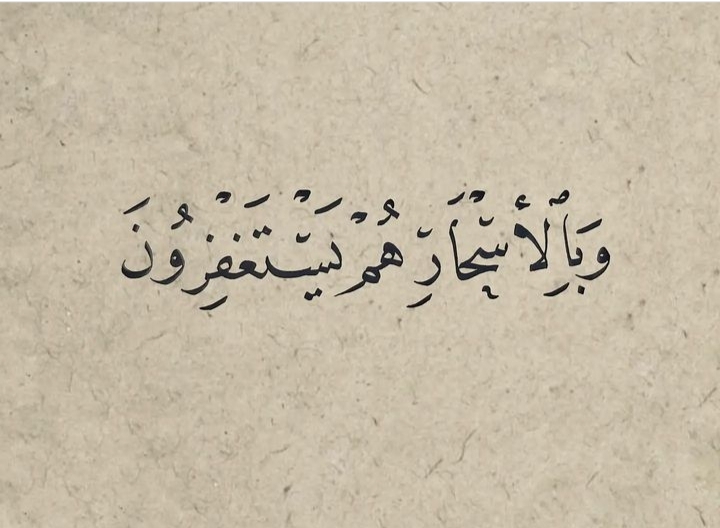 وَبِٱلْأَسْحَارِ هُمْ يَسْتَغْفِرُونَ